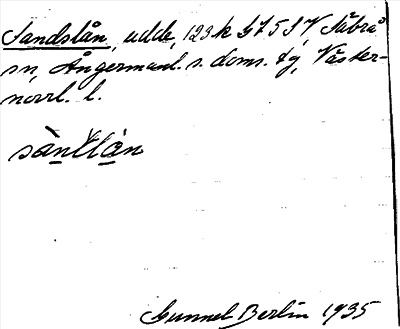 Sandslån, udde, 123 k g 7 5 S V, Säbrå
sn, Ångermanl. s. doms. tg, Väster-
norrl. l.
Gunnel Berlin 1935